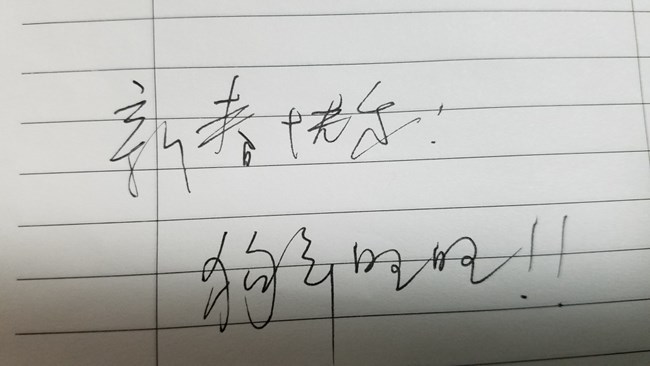 新春快乐!
狗年旺旺!!